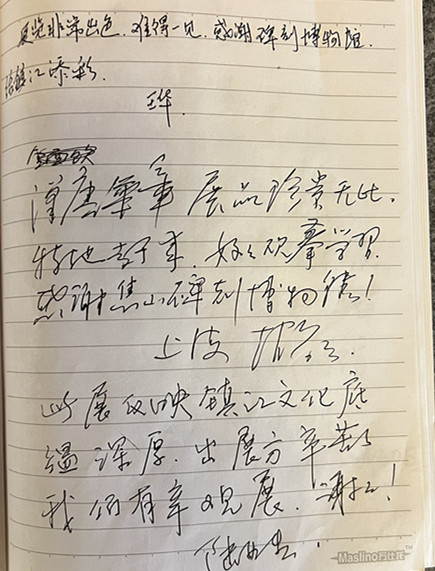 展览非常出色,难得一见,感谢碑刻博物馆.
给镇江添彩.
汉唐 展品珍贵无比.
特地赶来 好好观摩学习
感谢焦山碑刻博物馆!
上海
此展反映镇江文化底
蕴深厚.出展方辛苦
我们有幸观展.谢谢!
Maslino